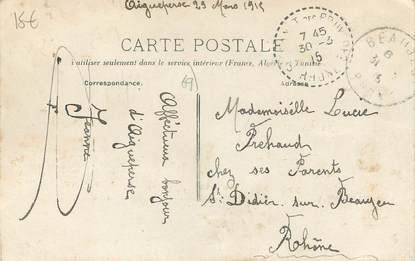 15€
Aigueperse 29 Mars 1915
CARTE POSTALE
utiliser seulement dans le service intérieur (France, Algérie et Tunisie
Correspondance.
Adresse
69
Affectueux bonjour
d'Aigueperse
Jeanne
Mademoiselle Lucie
Prehaud
chez ses Parents
St Didier. sur. Beaujeu
Rhône
7 45
30 -3
15
BEAUJEU